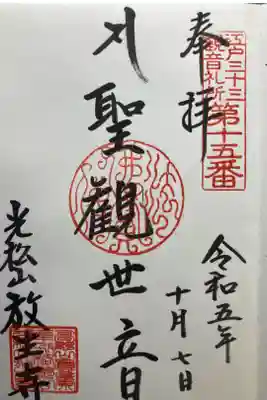 江戸三十三
観音札所
第十五番
奉拝
聖觀世音
令和五年
十月七日
光松山放生寺